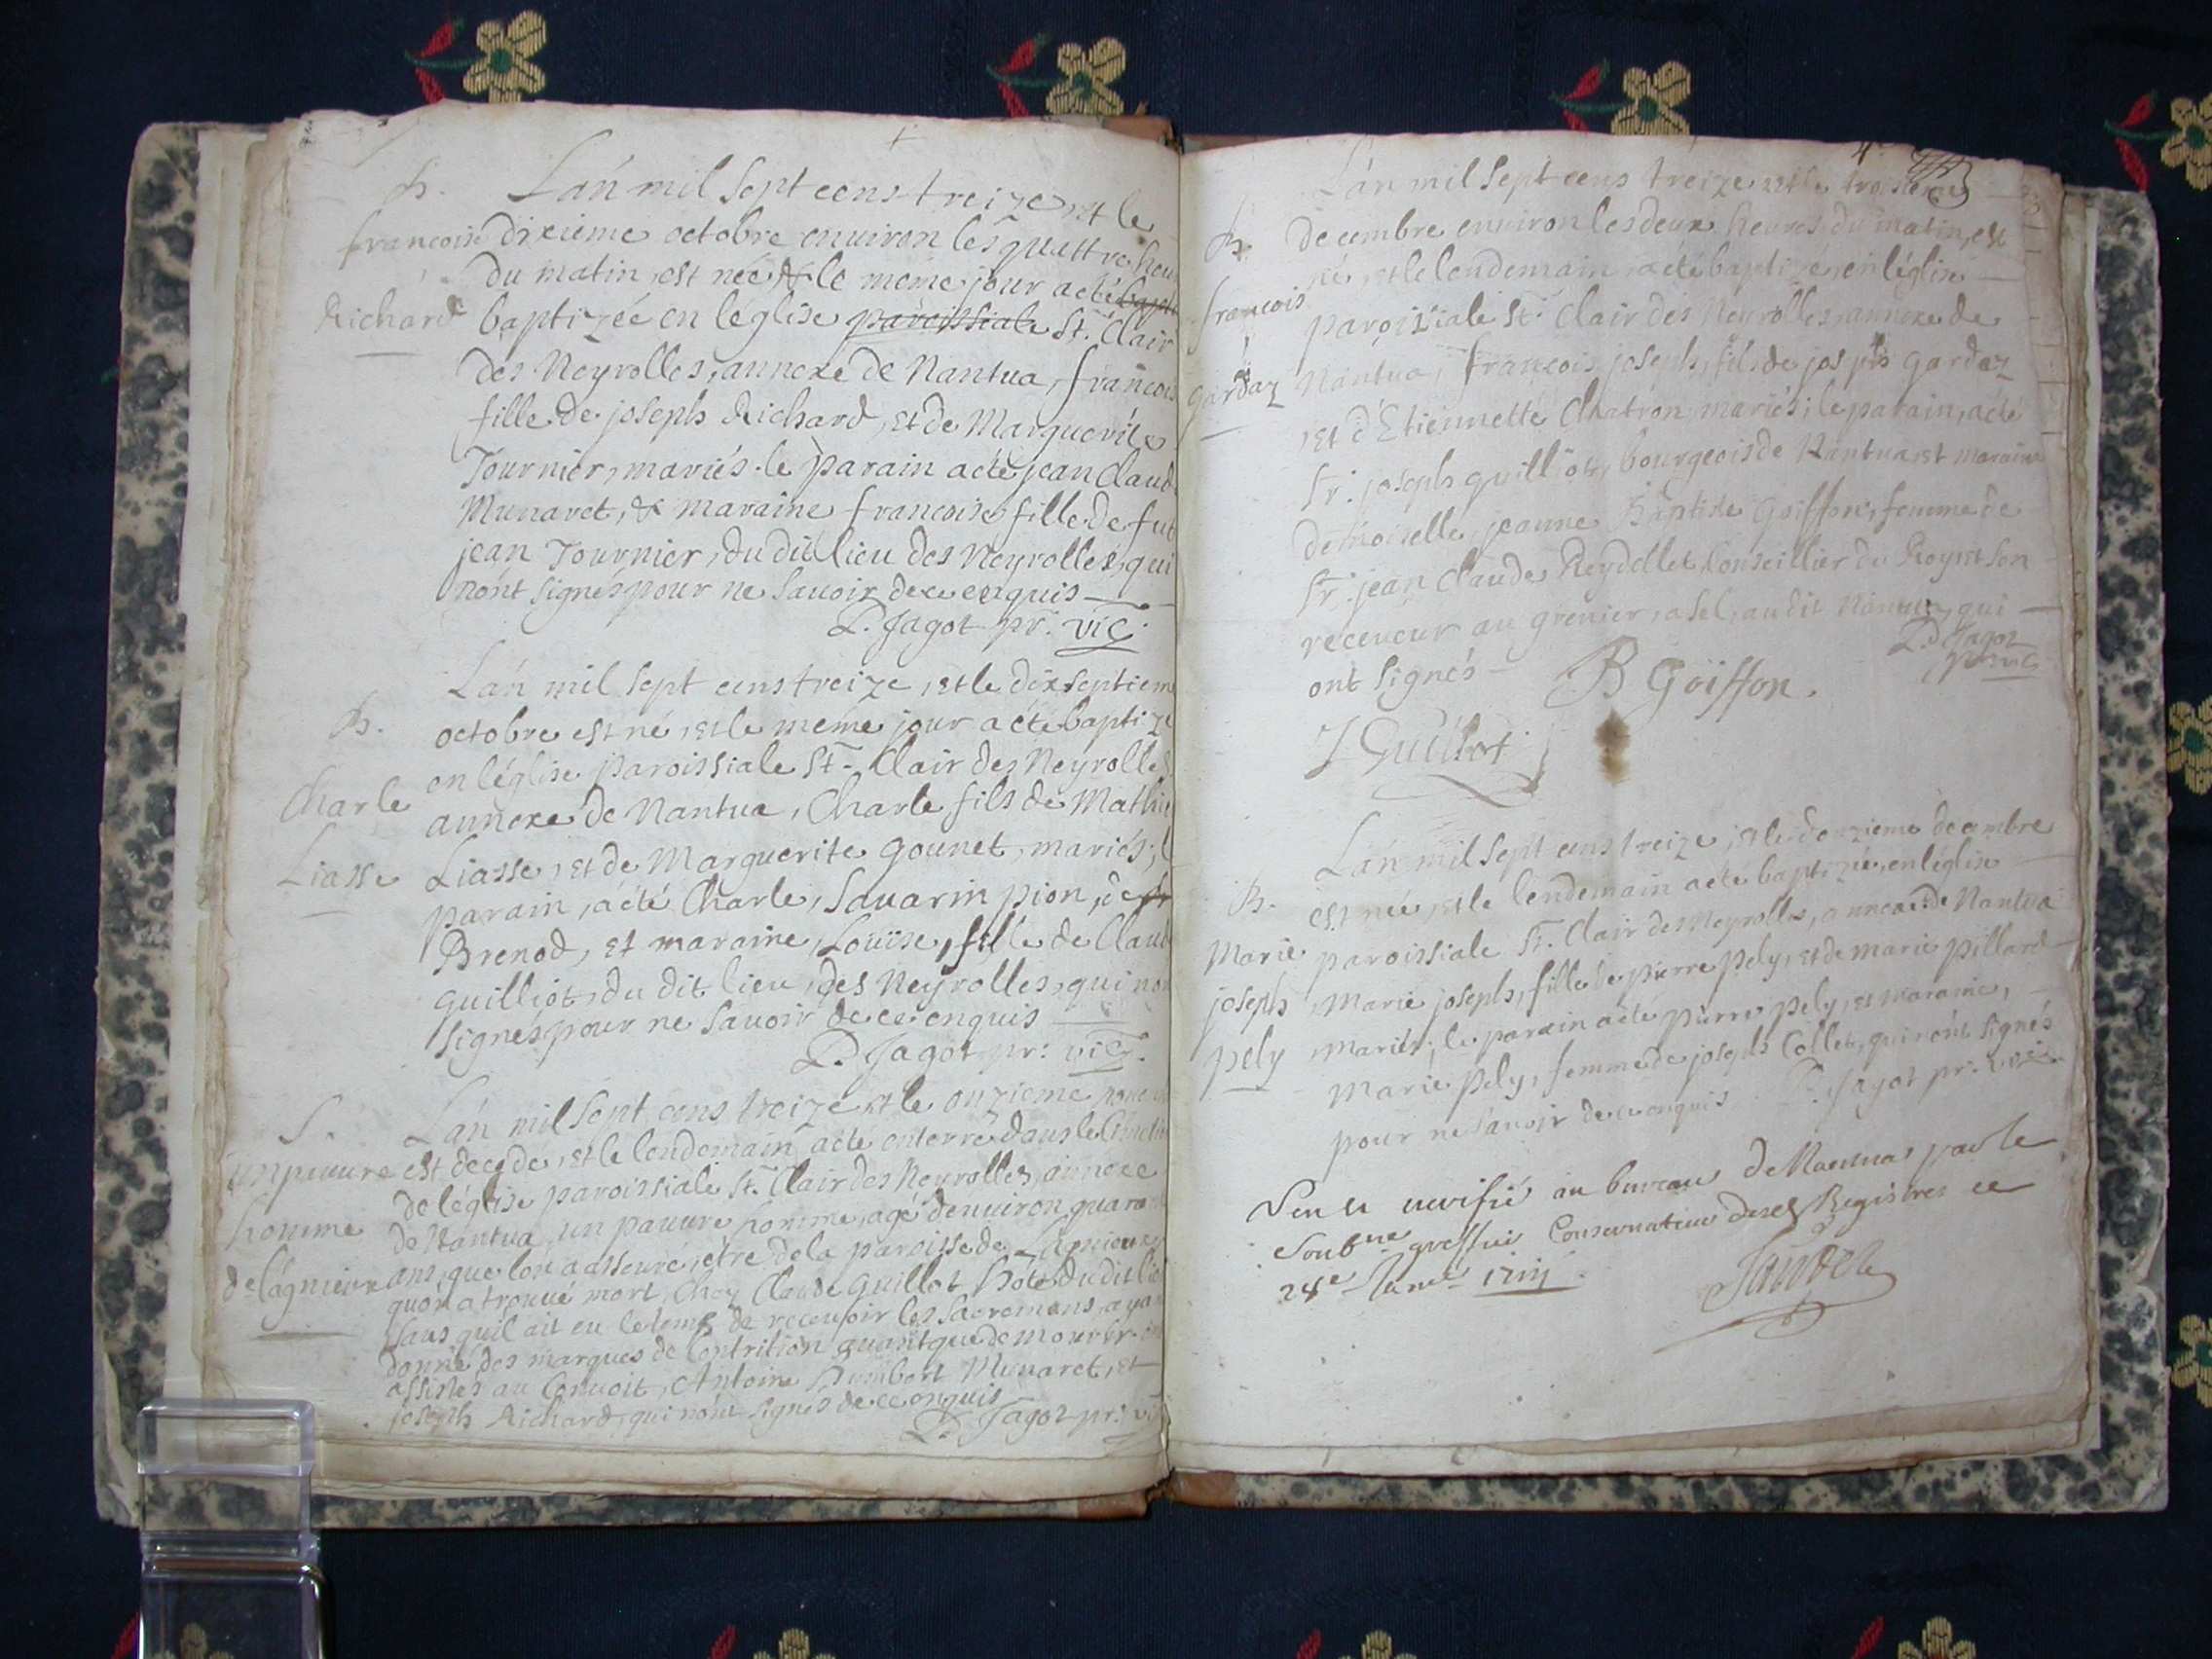 B.
francoise
Richard
Lán mil sept cens treize, et le
dixieme octobre enuiron les quattre heu
du matin, est neé & le même jour a eté bapti
baptizeé en léglise paroissiale St. Clair
des Neyrolles, annexe de Nantua, francois
fille de joseph Richard, et de Marguerite
Tournier, mariés. le parain a eté jean Claud
Munaret, & maraine francoise fille de fut
jean Tournier, du dit lieu des Neyrolles, qui
nónt signés pour ne sauoir de ce enquis
D. Jagot pr. vic.
B.
Charle
Liasse
Lán mil sept cens treize, et le dixseptiem
octobre est né, et le même jour a eté baptizé
en léglise paroissiale St. Clair des Neyrolles
annexe de Nantua, Charle fils de Mathie
Liasse, et de Marguerite Gounet, mariés; l
parain, a eté Charle, Sauarin pion, de
Brenod, et maraine, Louïse, fille de Claud
Guilliot, du dit lieu, des Neyrolles, qui non
signés pour ne sauoir de ce enquis
D. Jagot pr. vic.
S.
un pauure
homme
de lágnieux
Lán mil sept cens treize et le onzieme noue
est decede, et le lendemain a eté enterré dans le Cimeti
de léglise paroissiale St. Clair des Neyrolles, annexe
de Nantua, un pauure homme, agé denuiron quaran
ans, que lon a asseure, etre de la paroisse de Lagnieux
quón a trouué mort, Chez Claude Guillot hôte du dit lie
sans quil ait eu le tems de receuoir les sacremens, aya
donné des marques de Contrition auant que de mourir.
assistés au Conuoit, Antoine Humbert Munaret, et
joseph Richard, qui nónt signés de ce enquis
D. Jagot pr. vi
4.
B.
francois
j
gardaz
Lán mil sept cens treize et le troisieme
decembre enuiron les deux heures du matin, est
né, et le lendemain a eté baptizé, en léglise
paroissiale St. Clair des Neyrolles, annexe de
Nantua, francois joseph, fils de joseph gardaz
et d'Etiennette Chatron mariés; le parain, a eté
Sr. joseph guilliot, bourgeois de Nantua, et maraine
demoiselle, jeanne Baptiste Goiffon, femme de
Sr. jean Claude Reydellet, Conseillier du Roy, et son
receueur au grenier, a sel, au dit Nantua, qui
ont signés
D. Jagot
pr. vic
B Goiffon.
J Guillot
B.
Marie
joseph
pely
Lán mil sept cens treize, et le douzieme decembre
est neé, et le lendemain a eté baptizeé, en léglise
paroissiale St. Clair des Neyrolles, annexe de Nantua
Marie joseph, fille de pierre pely, et de marie pillard
mariés; le parain a eté pierre pely, et maraine,
Marie pely, femme de joseph Collet, qui nónt signés
pour ne sauoir de ce enquis D. Jagot pr. vic.
Veu et verifié au bureau de Nantua par le
soubne greffier Conservateur desd Registres ce